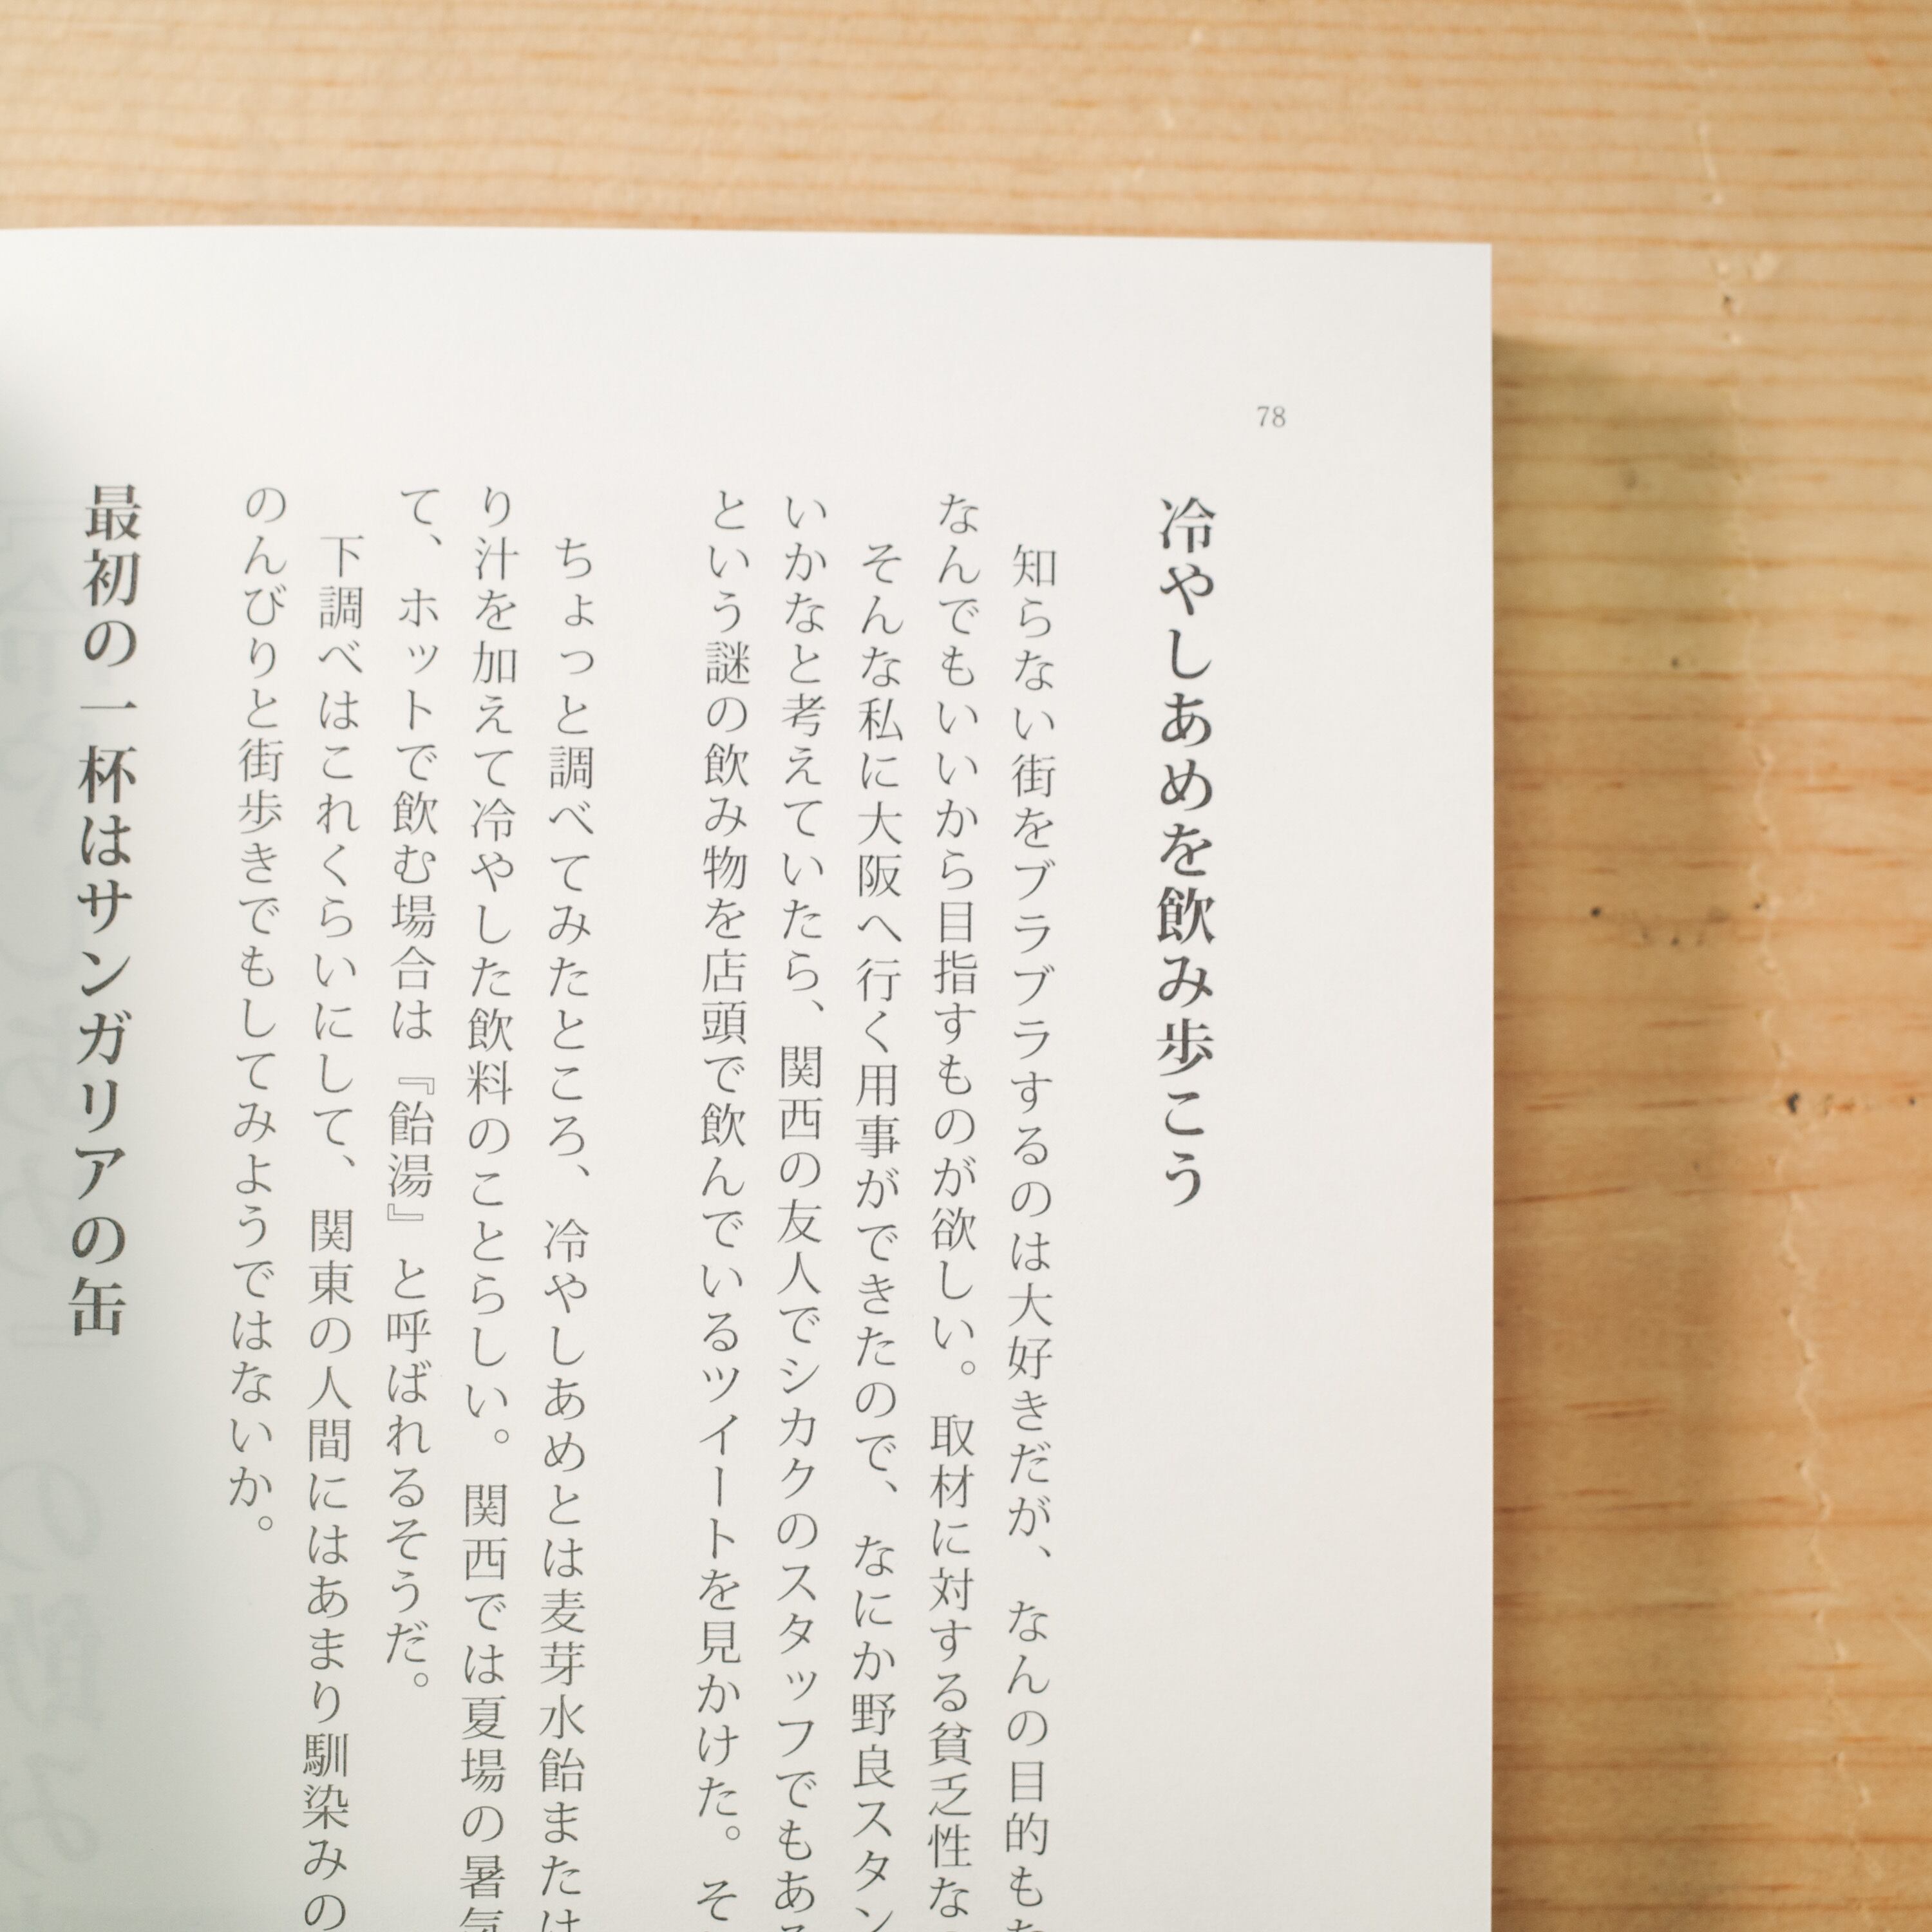 78
冷やしあめを飲み歩こう
知らない街をブラブラするのは大好きだが、なんの目的も
なんでもいいから目指すものが欲しい。取材に対する貧乏性な
そんな私に大阪へ行く用事ができたので、なにか野良スタン
いかなと考えていたら、関西の友人でシカクのスタッフでもあ
という謎の飲み物を店頭で飲んでいるツイートを見かけた。そ
ちょっと調べてみたところ、冷やしあめとは麦芽水飴または
り汁を加えて冷やした飲料のことらしい。関西では夏場の暑気
て、ホットで飲む場合は『飴湯』と呼ばれるそうだ。
下調べはこれくらいにして、関東の人間にはあまり馴染みの
のんびりと街歩きでもしてみようではないか。
最初の一杯はサンガリアの缶